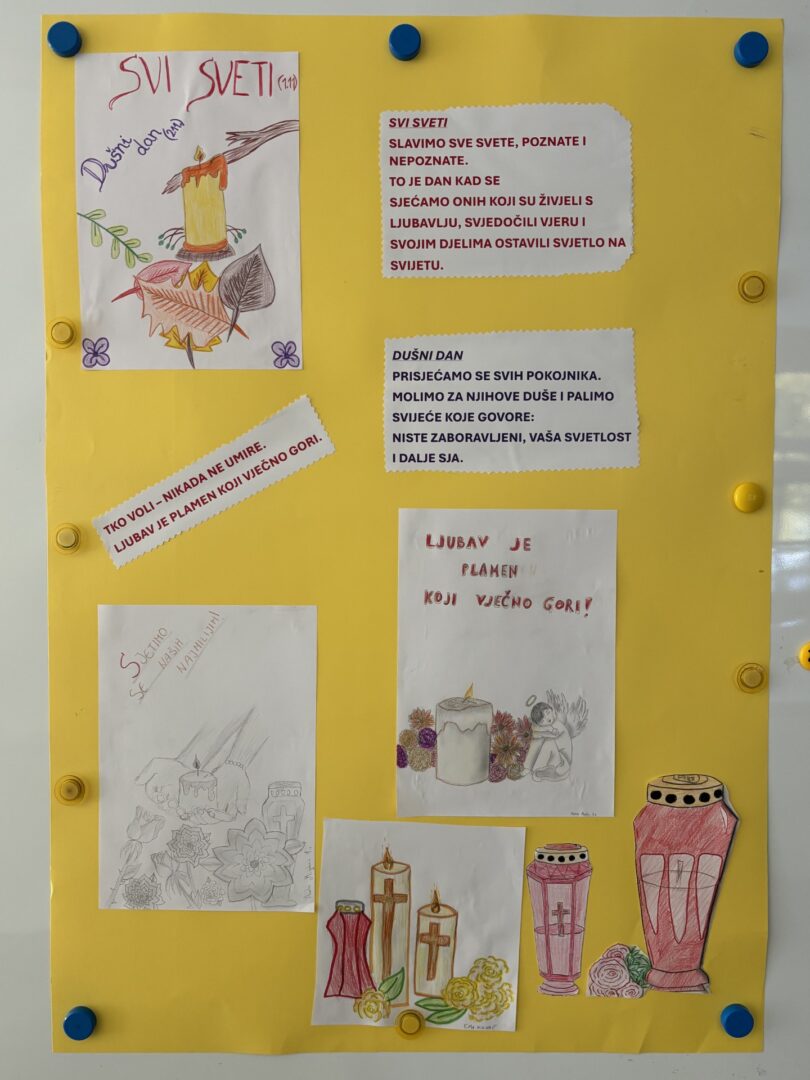 SVI SVETI (1.11)
Dušni
dan (2.11.)
SVI SVETI
SLAVIMO SVE SVETE, POZNATE I
NEPOZNATE.
TO JE DAN KAD SE
SJEĆAMO ONIH KOJI SU ŽIVJELI S
LJUBAVLJU, SVJEDOČILI VJERU I
SVOJIM DJELIMA OSTAVILI SVJETLO NA
SVIJETU.
DUŠNI DAN
PRISJEĆAMO SE SVIH POKOJNIKA.
MOLIMO ZA NJIHOVE DUŠE I PALIMO
SVIJEĆE KOJE GOVORE:
NISTE ZABORAVLJENI, VAŠA SVJETLOST
I DALJE SJA.
TKO VOLI – NIKADA NE UMIRE.
LJUBAV JE PLAMEN KOJI VJEČNO GORI.
LJUBAV JE
PLAMEN
KOJI VJEČNO GORI!
SJETIMO
SE NAŠIH
NAJMILIJIH!